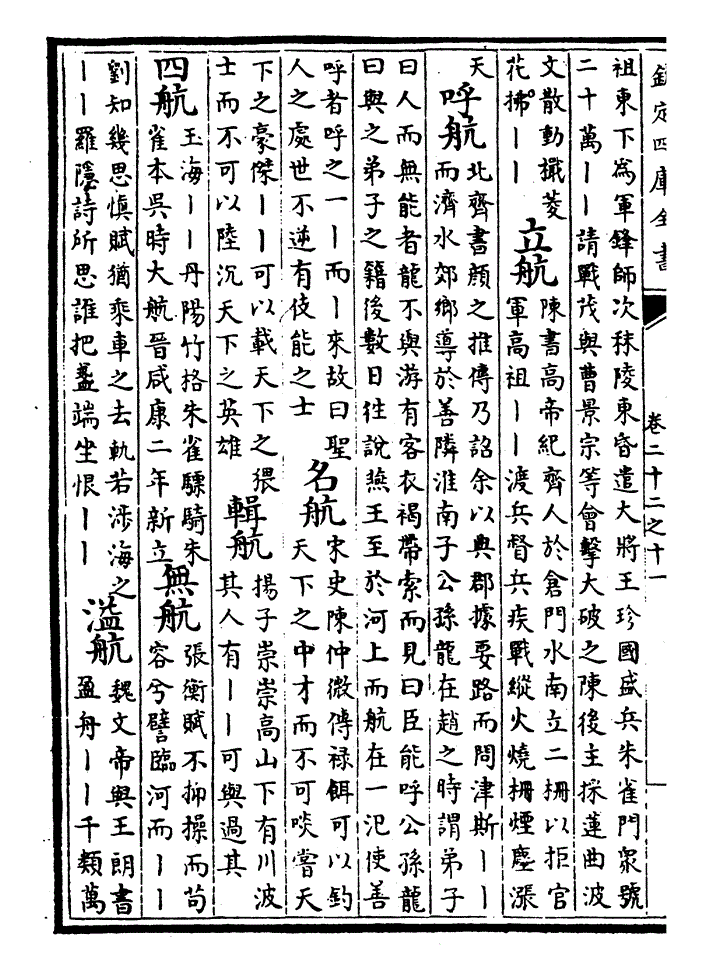 欽定四庫全書
卷二十二之十一
祖東下為軍鋒師次秣陵東昏遣大將王珍國盛兵朱雀門衆號
二十萬——請戰茂與曹景宗等會擊大破之陳後主採蓮曲波
文散動橶菱
花拂——
立航
陳書高帝紀齊人於倉門水南立二柵以拒官
軍高祖——渡兵督兵疾戰縱火燒柵煙塵漲
天
呼航
北齊書顔之推傳乃詔余以典郡據要路而問津斯——
而濟水郊鄉導於善隣淮南子公孫龍在趙之時謂弟子
曰人而無能者龍不與游有客衣褐帶索而見曰臣能呼公孫龍
曰與之弟子之籍後數日往說燕王至於河上而航在一汜使善
呼者呼之一—而—來故曰聖
人之處世不逆有伎能之士
名航
宋史陳仲微傳祿餌可以釣
天下之中才而不可啖嘗天
下之豪傑——可以載天下之猥
士而不可以陸沉天下之英雄
輯航
揚子崇崇高山下有川波
其人有——可與過其
四航
玉海——丹陽竹格朱雀驃騎朱
雀本吳時大航晉咸康二年新立
無航
張衡賦不抑操而苟
容兮譬臨河而——
劉知幾思慎賦猶乘車之去軌若涉海之
——羅隱詩所思誰把盞端坐恨——
濫航
魏文帝與王朗書
盈舟——千類萬